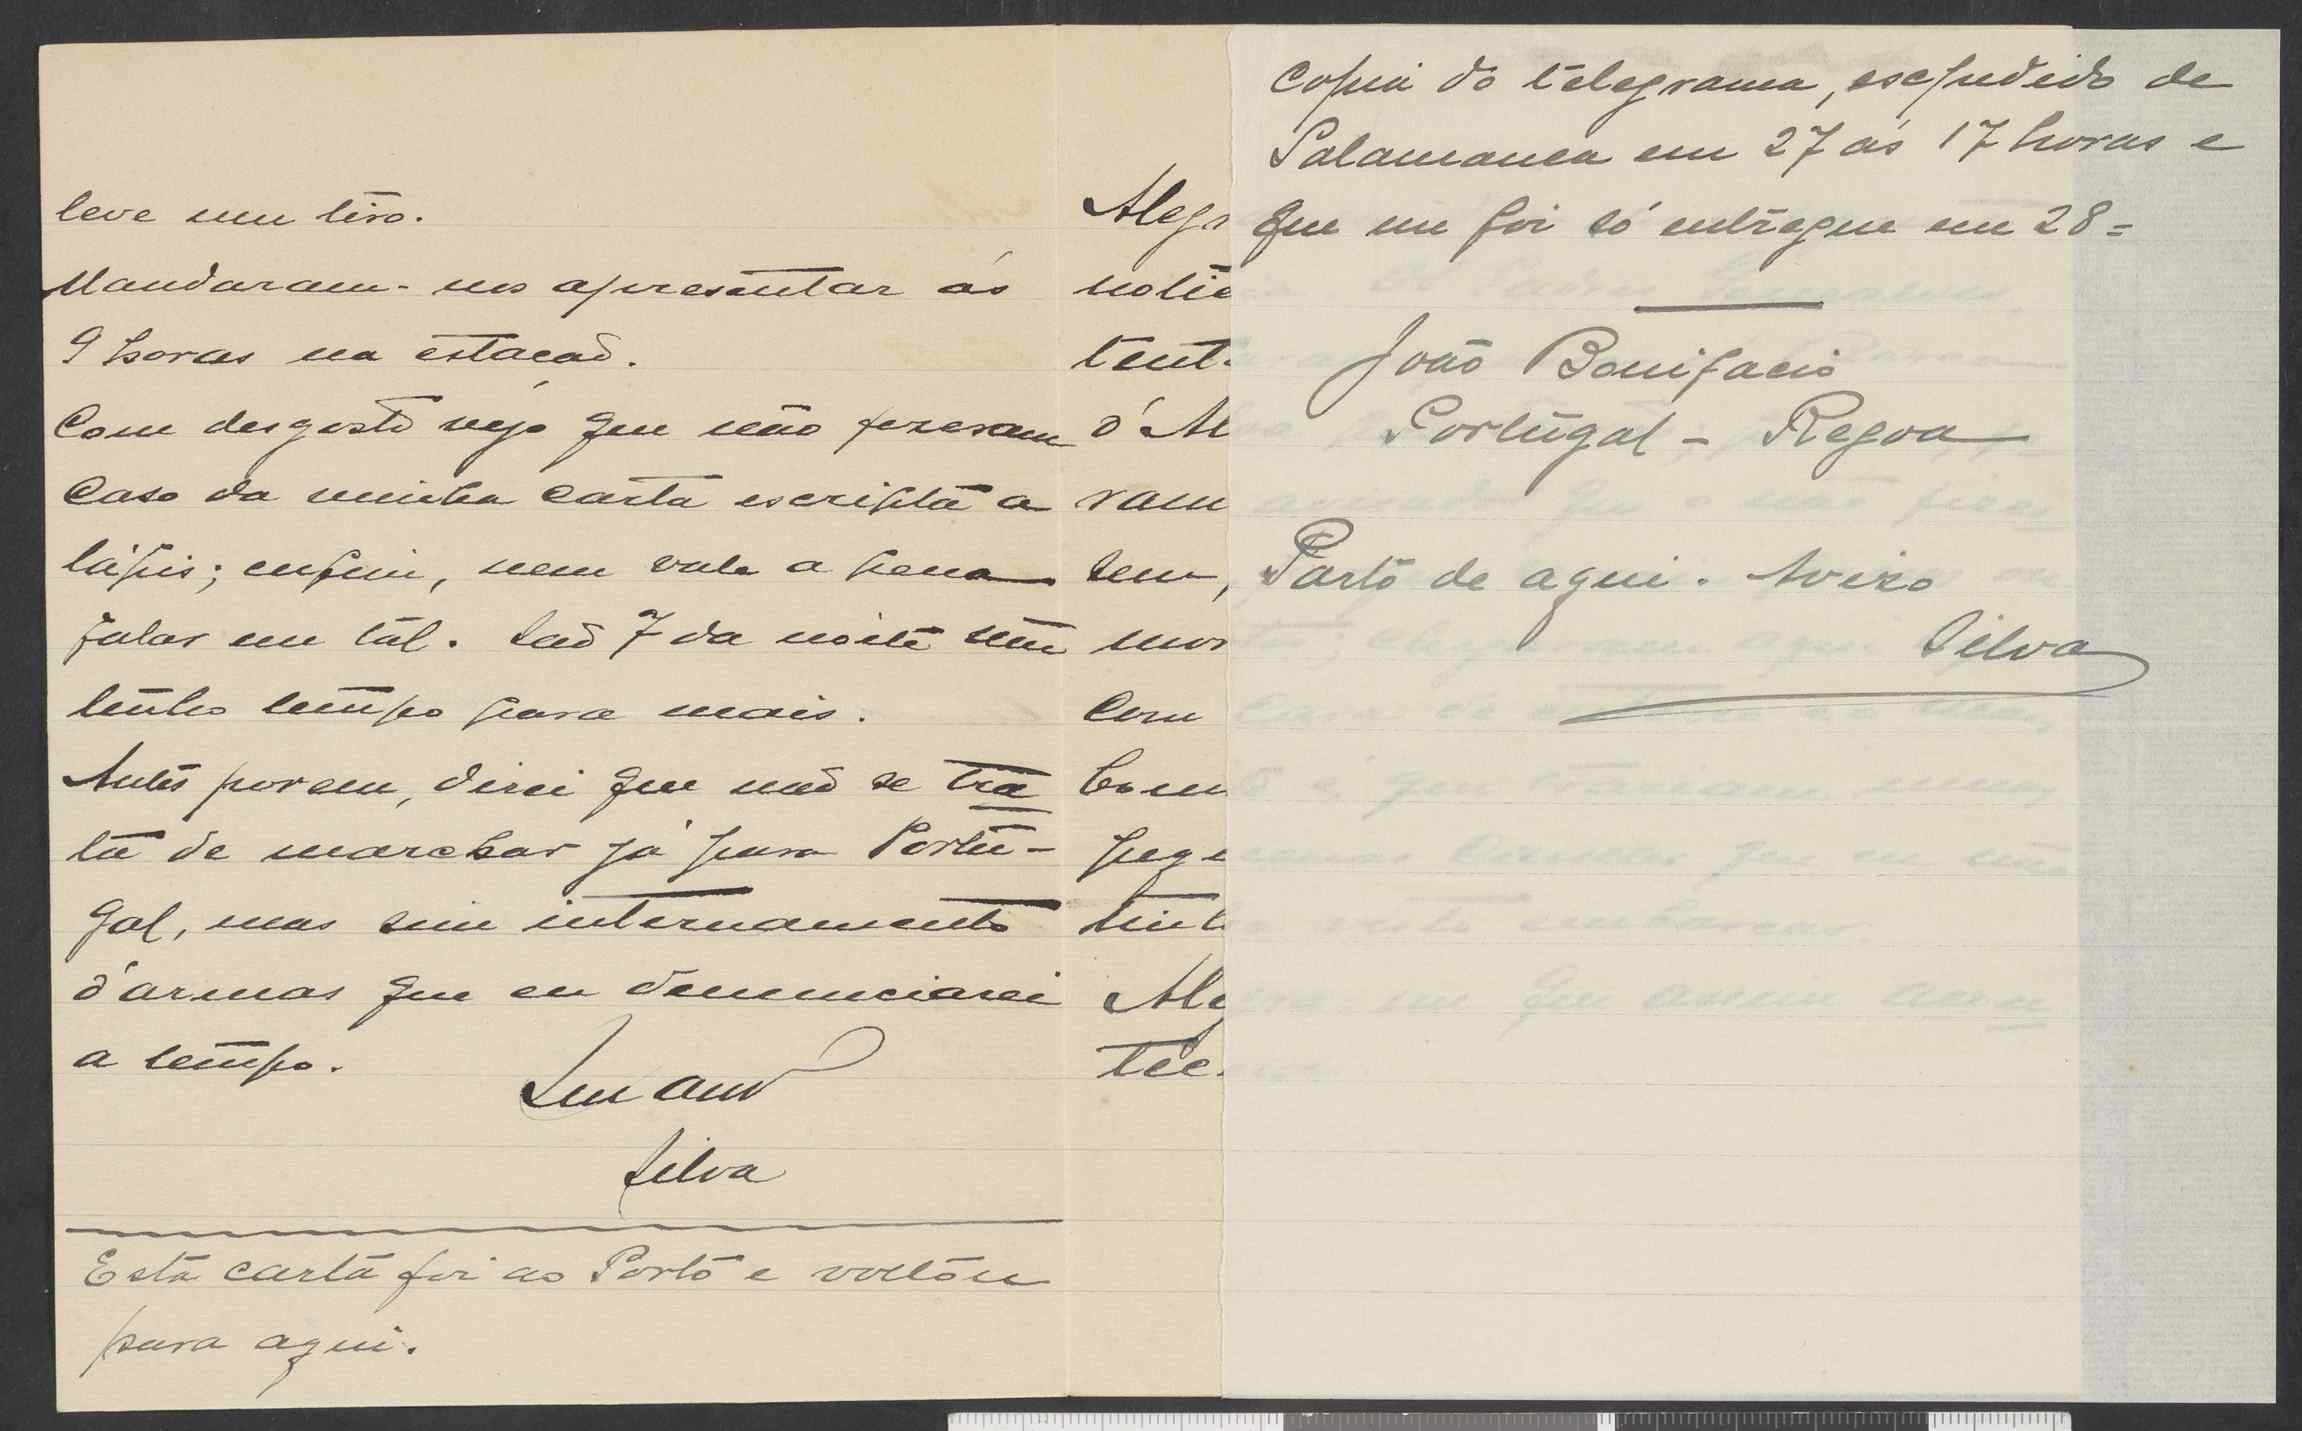 leve um tiro.
Mandaram-nos apresentar ás
9 horas na estacaõ.
Com desgosto vejo que não fizeram
caso da minha carta escripta a
lápis; enfim, nem vale a pena
falar em tal. Saõ 7 da noite nem
tenho tempo para mais.
Antes porem, direi que naõ se tra
ta de marchar já para Portu-
gal, mas sim internamento
d'armas que eu denunciarei
a tempo.
Silva
Esta carta foi ao Porto e voltou
para aqui.
Alegr
notic
tent
d'Al
ram
sem,
mor
com
Com
peqe
tinh
Ale
tec.
Copia do telegrama, expedido de
Salamanca em 27 ás 17 horas e
que me foi só entregue em 28=
João Bonifacio
Portugal - Regoa
Parto de aqui. Aviso
Silva